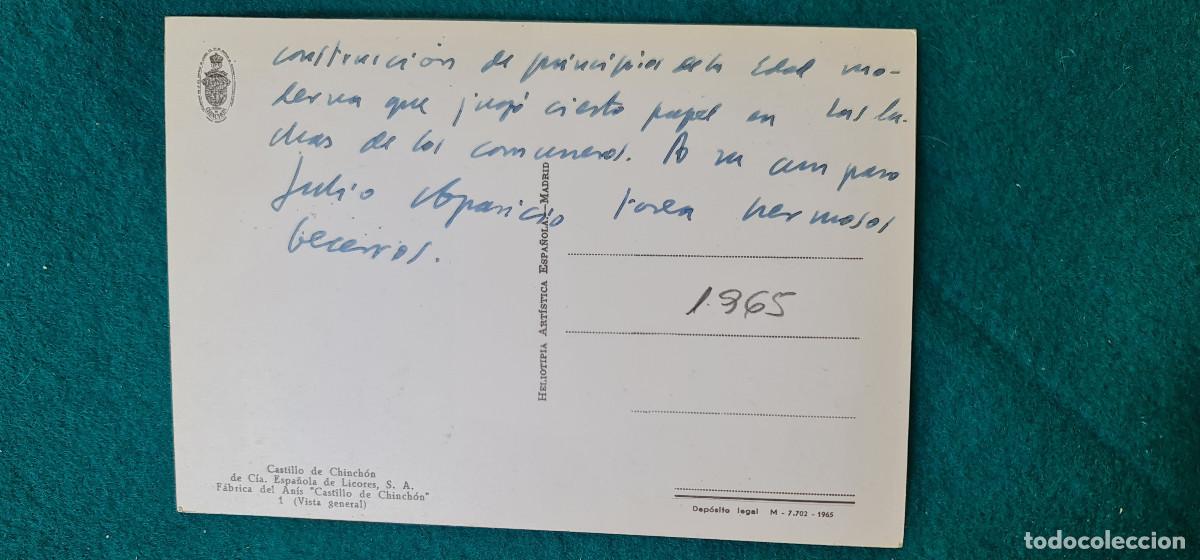 construcción de principios de la Edad mo-
derna que jugó cierto papel en las lu-
chas de los comuneros. A su amparo
Julio Aparicio torea hermosos
becerros.
HELIOTIPIA ARTÍSTICA ESPAÑOLA.-MADRID
1965
CHINCHON
Castillo de Chinchón
de Cía. Española de Licores, S. A.
Fábrica del Anís "Castillo de Chinchón"
1 (Vista general)
Depósito legal M - 7.702 - 1965
todocoleccion